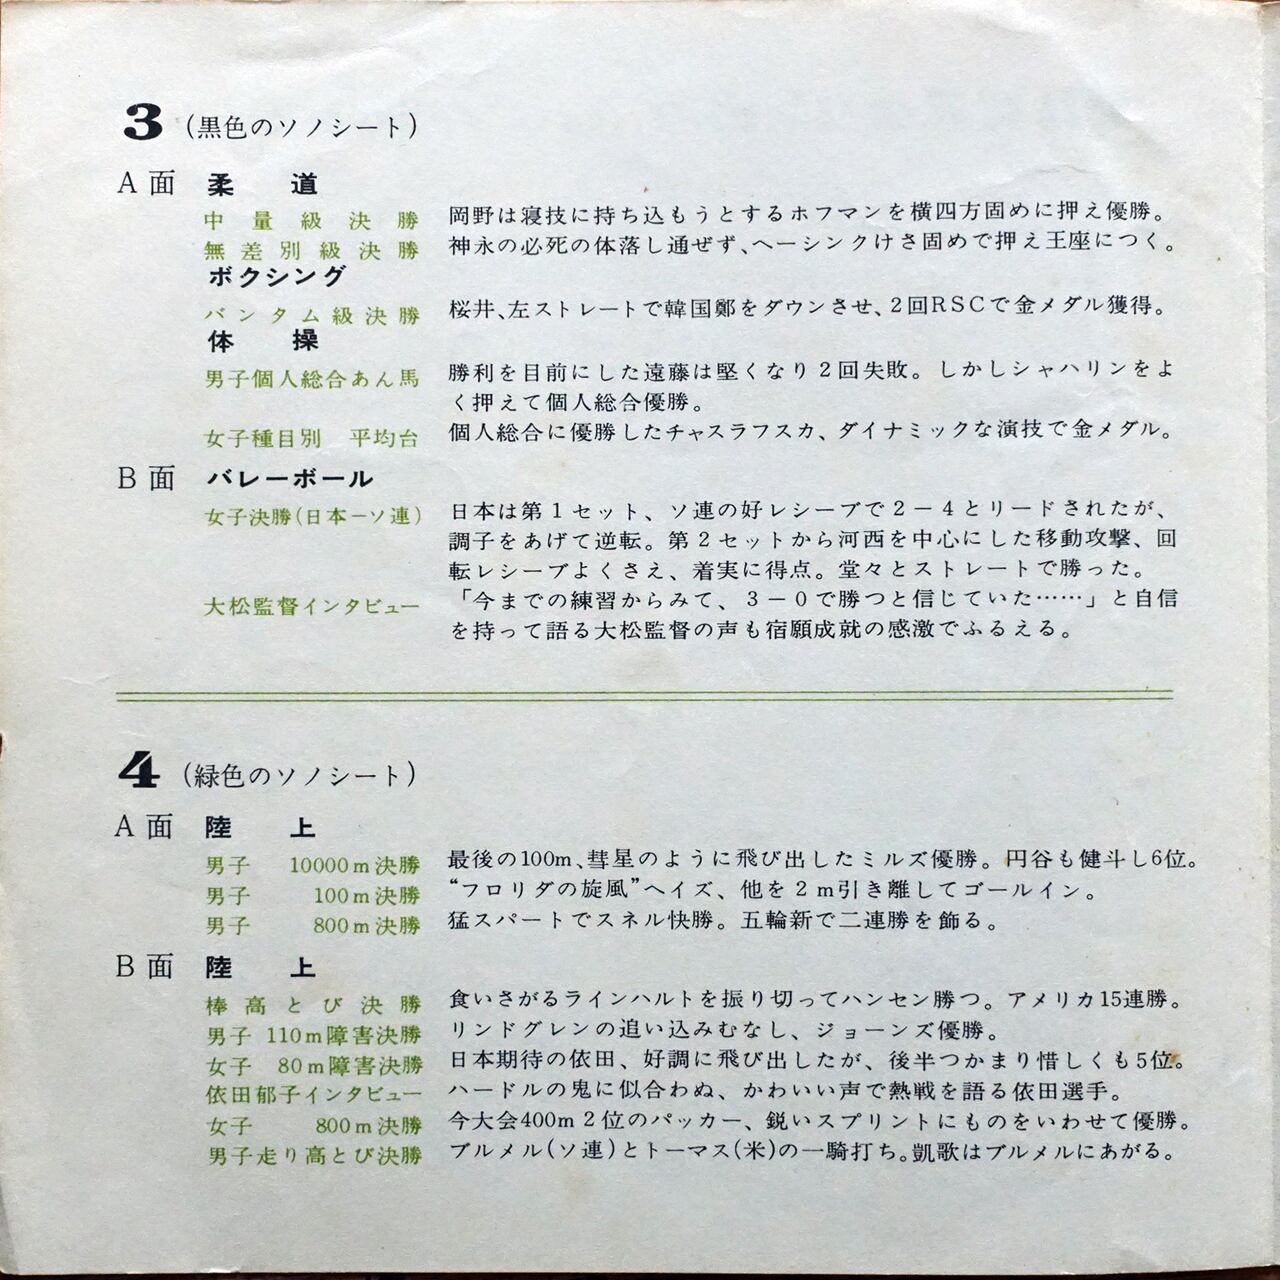 3 (黒色のソノシート)
A面 柔 道
中量級決勝 岡野は寝技に持ち込もうとするホフマンを横四方固めに押え優勝。
無差別級決勝 神永の必死の体落し通ぜず、ヘーシンクけさ固めで押え王座につく。
ボクシング
バンタム級決勝 桜井、左ストレートで韓国鄭をダウンさせ、2回RSCで金メダル獲得。
体 操
男子個人総合あん馬 勝利を目前にした遠藤は堅くなり2回失敗。しかしシャハリンをよ
く押えて個人総合優勝。
女子種目別 平均台 個人総合に優勝したチャスラフスカ、ダイナミックな演技で金メダル。
B面 バレーボール
女子決勝(日本−ソ連) 日本は第1セット、ソ連の好レシーブで2−4とリードされたが、
調子をあげて逆転。第2セットから河西を中心にした移動攻撃、回
転レシーブよくさえ、着実に得点。堂々とストレートで勝った。
大松監督インタビュー 「今までの練習からみて、3−0で勝つと信じていた……」と自信
を持って語る大松監督の声も宿願成就の感激でふるえる。
4 (緑色のソノシート)
A面 陸 上
男子 10000m決勝 最後の100m、彗星のように飛び出したミルズ優勝。円谷も健斗し6位。
男子 100m決勝 “フロリダの旋風”ヘイズ、他を2m引き離してゴールイン。
男子 800m決勝 猛スパートでスネル快勝。五輪新で二連勝を飾る。
B面 陸 上
棒高とび決勝 食いさがるラインハルトを振り切ってハンセン勝つ。アメリカ15連勝。
男子 110m障害決勝 リンドグレンの追い込みむなし、ジョーンズ優勝。
女子 80m障害決勝 日本期待の依田、好調に飛び出したが、後半つかまり惜しくも5位。
依田郁子インタビュー ハードルの鬼に似合わぬ、かわいい声で熱戦を語る依田選手。
女子 800m決勝 今大会400m2位のパッカー、鋭いスプリントにものをいわせて優勝。
男子走り高とび決勝 ブルメル(ソ連)とトーマス(米)の一騎打ち。凱歌はブルメルにあがる。